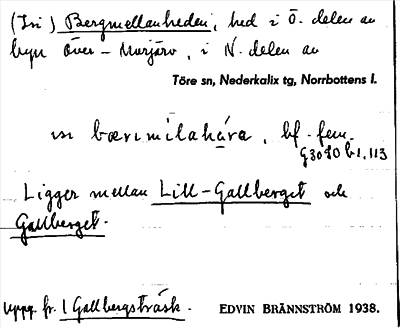 (In) Bergmellanheden, hed i Ö. delen av
byn Över-Morjärv, i N. delen av
Töre sn, Nederkalix tg, Norrbottens l.
bf. fem.
G3080 b1. 113
Ligger mellan Lill-Gallberget och
Gallberget.
Uppg. fr. 1 Gallbergsträsk.
EDVIN BRÄNNSTRÖM 1938.